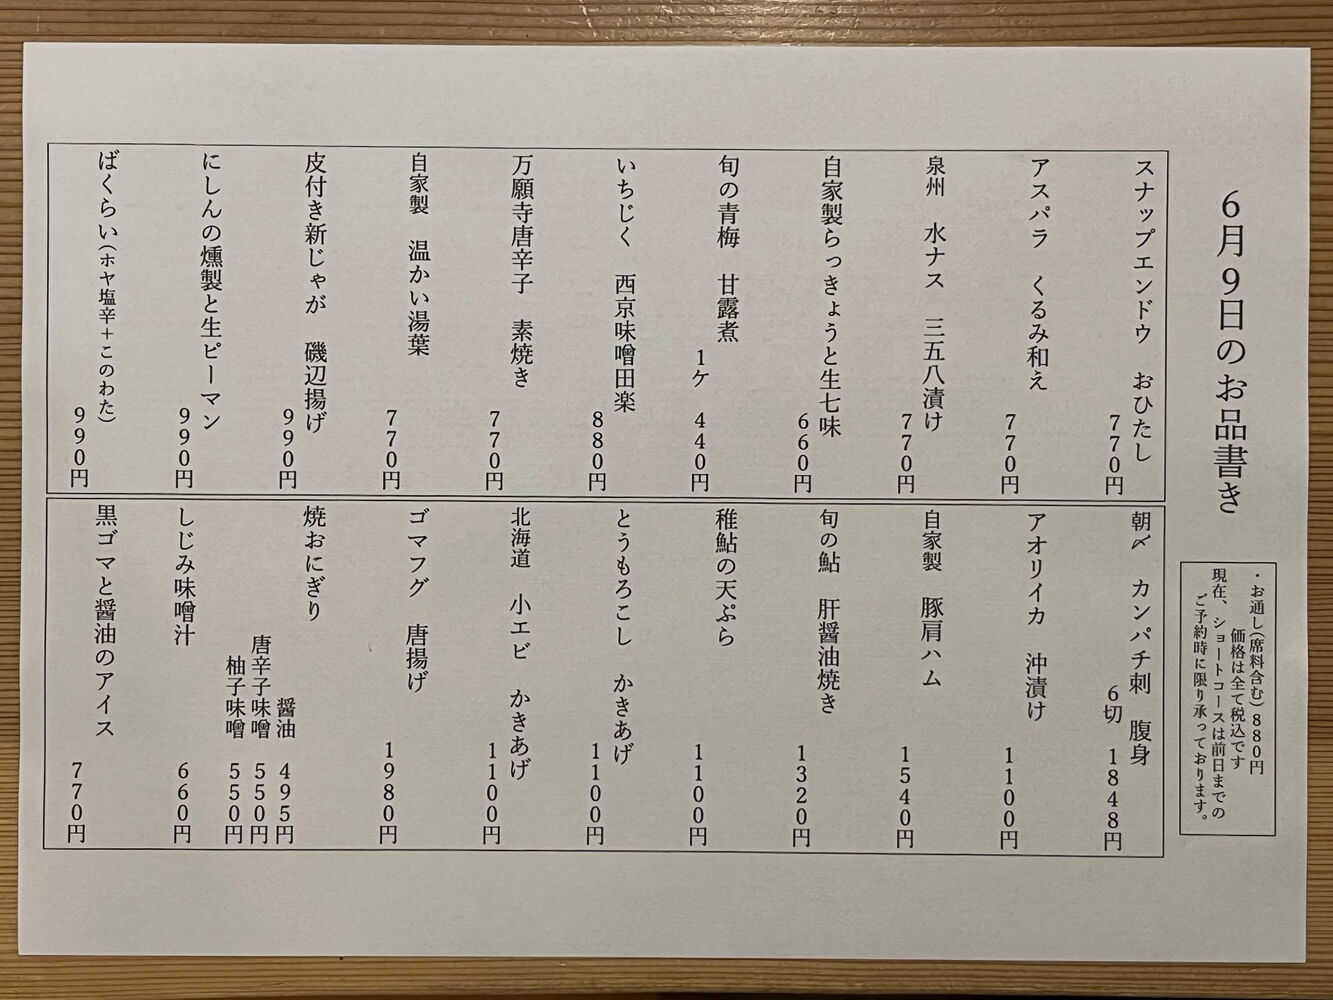 6月9日のお品書き
・お通し(席料含む)880円
価格は全て税込です
現在、ショートコースは前日までの
ご予約時に限り承っております。
スナップエンドウ　おひたし
770円
アスパラ　くるみ和え
770円
泉州　水ナス　三五八漬け
770円
自家製らっきょうと生七味
660円
旬の青梅　甘露煮
1ケ　440円
いちじく　西京味噌田楽
880円
万願寺唐辛子　素焼き
770円
自家製　温かい湯葉
770円
皮付き新じゃが　磯辺揚げ
990円
にしんの燻製と生ピーマン
990円
ばくらい(ホヤ塩辛+このわた)
990円
朝〆　カンパチ刺　腹身
6切　1848円
アオリイカ　沖漬け
1100円
自家製　豚肩ハム
1540円
旬の鮎　肝醤油焼き
1320円
稚鮎の天ぷら
1100円
とうもろこし　かきあげ
1100円
北海道　小エビ　かきあげ
1100円
ゴマフグ　唐揚げ
1980円
焼おにぎり
醤油　495円
唐辛子味噌　550円
柚子味噌　550円
しじみ味噌汁
660円
黒ゴマと醤油のアイス
770円